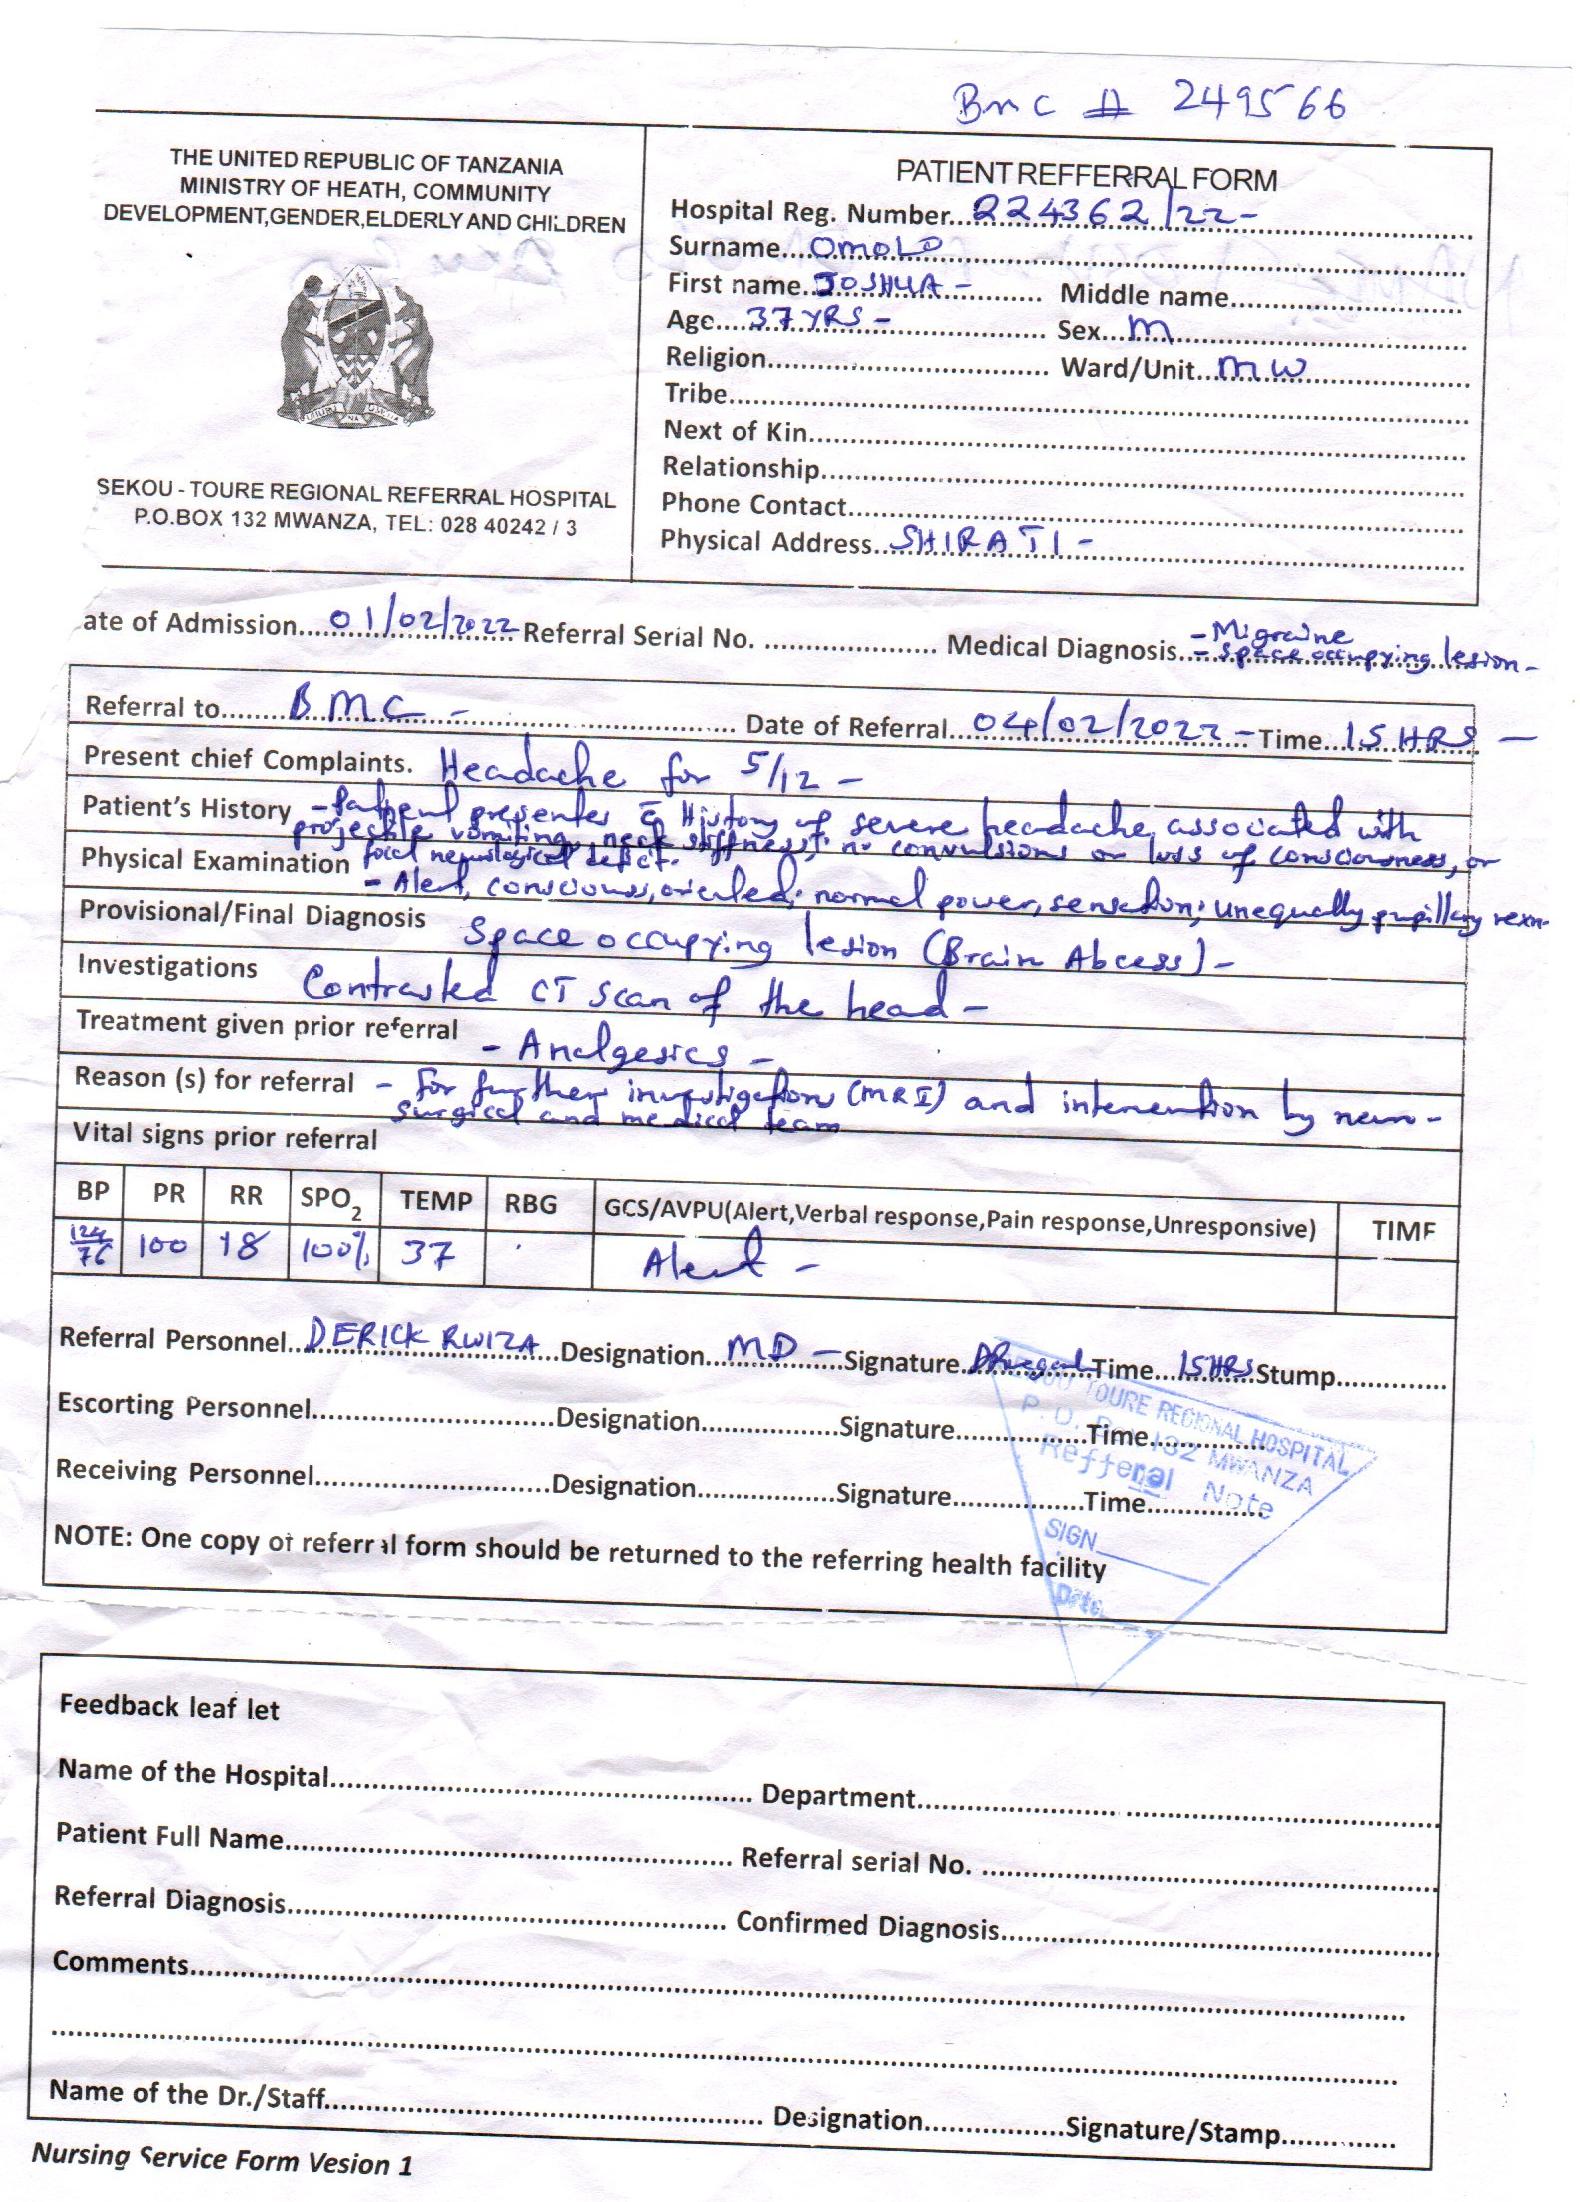 Bmc # 249566
THE UNITED REPUBLIC OF TANZANIA
MINISTRY OF HEATH, COMMUNITY
DEVELOPMENT,GENDER,ELDERLY AND CHILDREN
SEKOU - TOURE REGIONAL REFERRAL HOSPITAL
P.O.BOX 132 MWANZA, TEL: 028 40242 / 3
PATIENT REFFERRAL FORM
Hospital Reg. Number...224362/22-
Surname...OMOLO
First name...JOSHUA - Middle name...
Age...37YRS - Sex...M
Religion... Ward/Unit...MW
Tribe...
Next of Kin...
Relationship...
Phone Contact...
Physical Address...SHIRATI -
ate of Admission...01/02/2022 Referral Serial No. ... Medical Diagnosis...- Migraine
- Space occupying lesion -
Referral to...BMC - Date of Referral...04/02/2022 - Time...15HRS -
Present chief Complaints. Headache for 5/12 -
Patient's History - Patient presented c̄ History of severe headache associated with
projectile vomiting, neck stiffness, no convulsions or loss of consciousness, or
focal neurological deficit.
Physical Examination - Alert, conscious, oriented, normal power, sensation; unequally pupillary
Provisional/Final Diagnosis Space occupying lesion (Brain Abcess) -
Investigations Contrasted CT scan of the head -
Treatment given prior referral - Analgesics -
Reason (s) for referral - For further investigation (MRI) and intervention by neuro-
surgical and medical team
Vital signs prior referral
BP PR RR SPO2 TEMP RBG GCS/AVPU(Alert,Verbal response,Pain response,Unresponsive) TIMF
124/76 100 18 100% 37 Alert -
Referral Personnel...DERICK RWIZA...Designation...MD -...Signature...Time...15HRS Stump...
Escorting Personnel...Designation...Signature...Time...
Receiving Personnel...Designation...Signature...Time...
NOTE: One copy of referral form should be returned to the referring health facility
TOURE REGIONAL HOSPITAL
P. O. Box 132 MWANZA
Refferal Note
SIGN
Date
Feedback leaf let
Name of the Hospital... Department...
Patient Full Name... Referral serial No. ...
Referral Diagnosis... Confirmed Diagnosis...
Comments...
Name of the Dr./Staff... Designation...Signature/Stamp...
Nursing Service Form Vesion 1